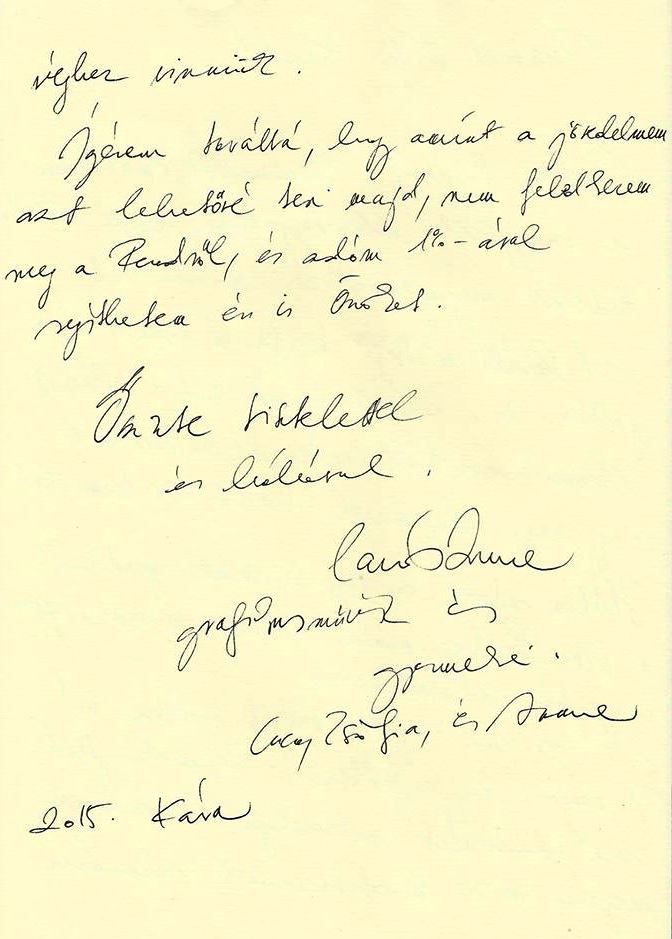 véghez vinniük.
Ígérem továbbá, hogy amint a jövedelmem
azt lehetővé teszi majd, nem feledkezem
meg a Rendről, és adóm 1%-ával
segíthetem én is Önöket.
Őszinte tisztelettel
és hálával.
grafikusművész és
gyermekei.
Zsófia, és
2015. Káva